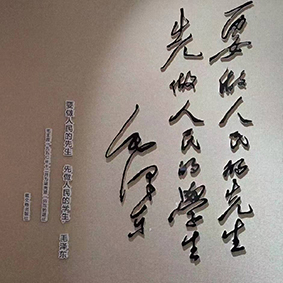 要做人民的先生
先做人民的學生
毛澤东
要做人民的先生　先做人民的学生　毛泽东